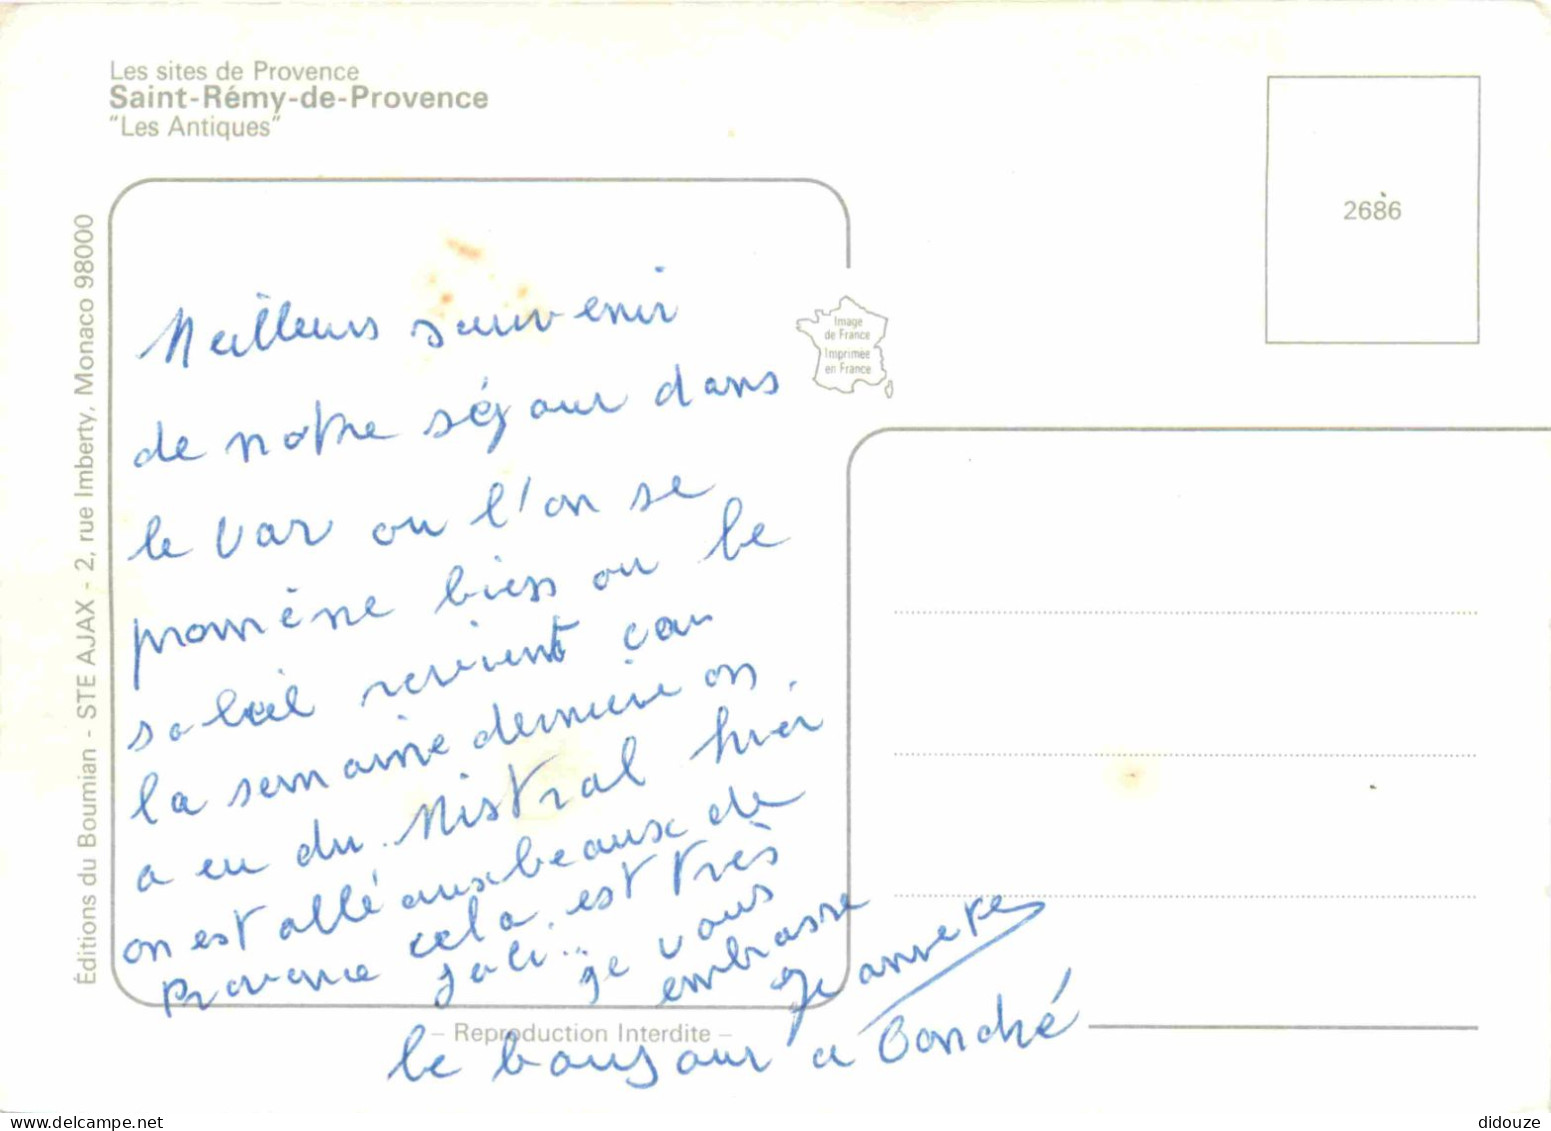 Les sites de Provence
Saint-Rémy-de-Provence
"Les Antiques"
2686
Éditions du Boumian - STE AJAX - 2, rue Imberty, Monaco 98000
Image
de France
Imprimée
en France
Meilleurs souvenir
de notre séjour dans
le Var ou l'on se
promène bien ou le
soleil revient car
la semaine dernière on
a eu du Mistral hier
on est allé aux beaux de
Provence cela est très
joli... je vous
embrasse
Jeannette
le bonjour a
– Reproduction Interdite –
didouze